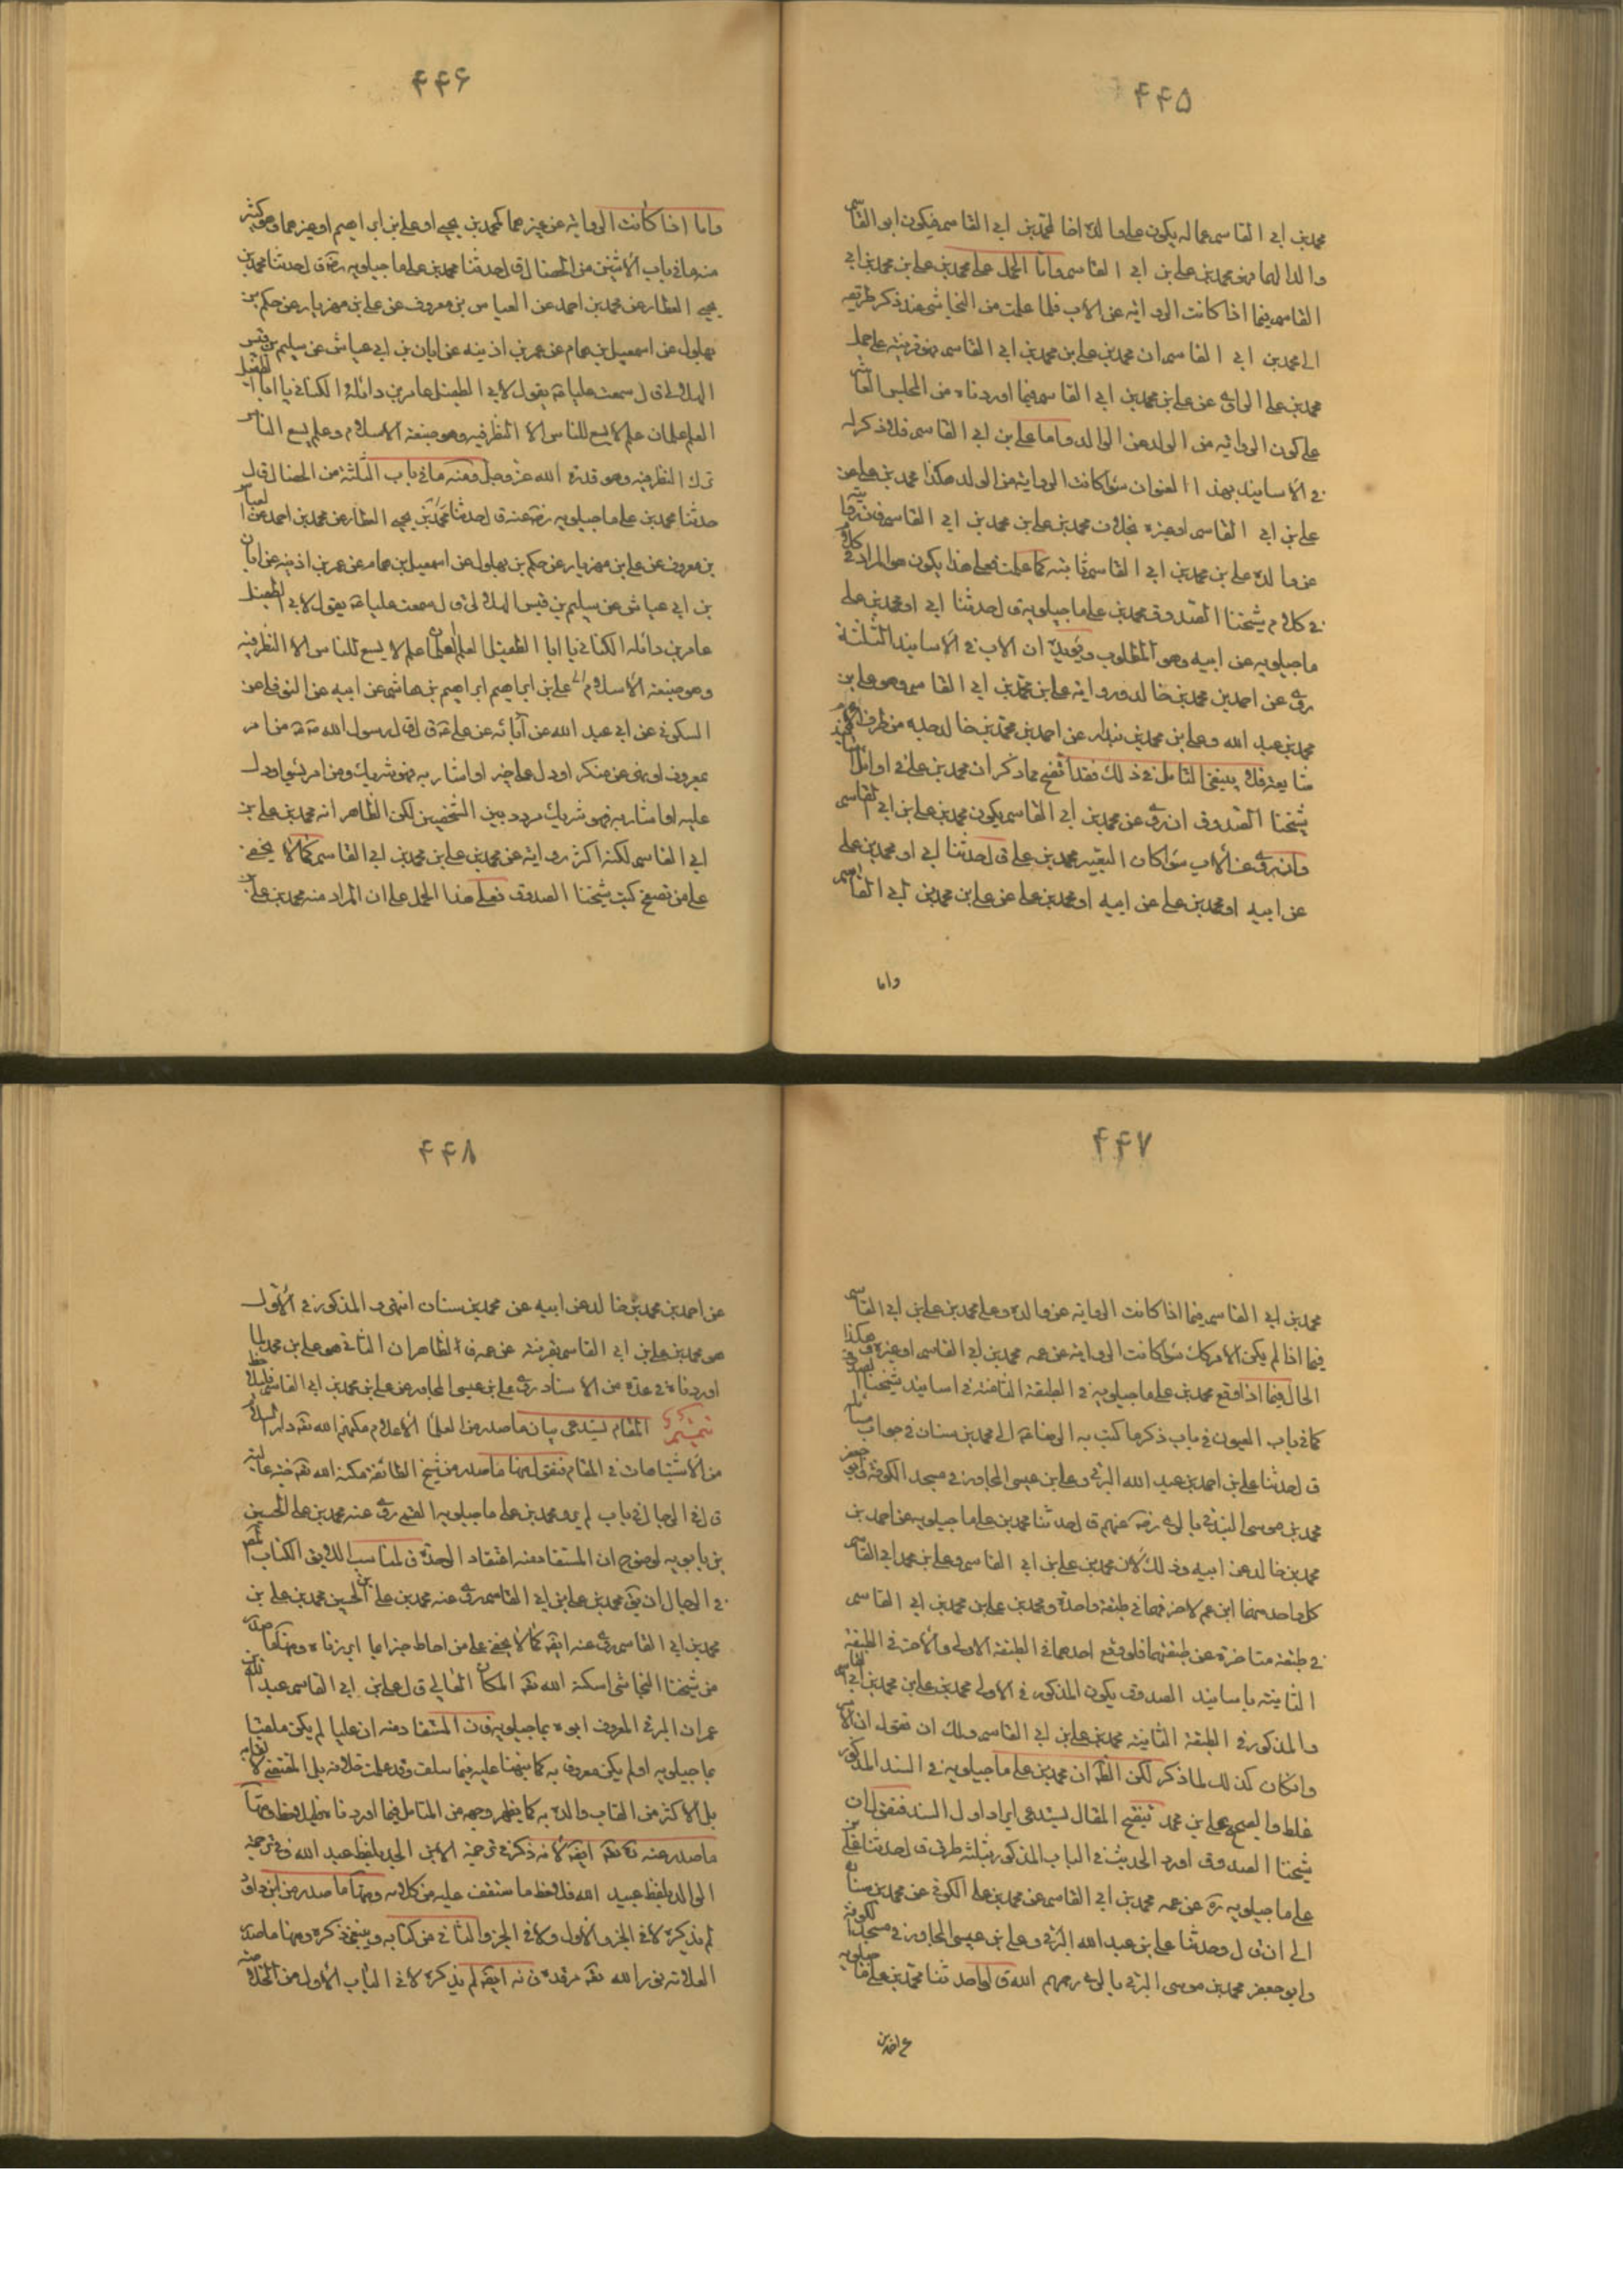 ۴۴۵
محمد بن ابي القاسم عما له يكون علي والده اخا لمحمد بن ابي القاسم فيكون ابو القاسم
والدا لهما وبن محمد بن علي بن ابي القاسم واما الحمل علي محمد بن علي بن محمد بن ابي
القاسم فيما اذا كانت الرواية عن الاب فلما علمت من النجاشي عند ذكر طريقه
الى محمد بن ابي القاسم ان محمد بن علي بن محمد بن ابي القاسم فهو قرينة على حمل
محمد بن علي الراوي عن علي بن محمد بن ابي القاسم فيما اوردناه من المجلس العاشر
على كون الرواية من الولد عن الوالد واما علي بن ابي القاسم فلا ذكر له
في الاسانيد بهذا العنوان سواء كانت الرواية من الولد هكذا محمد بن علي عن
علي بن ابي القاسم او غيره بخلاف محمد بن علي بن محمد بن ابي القاسم فان روايته
عن والده علي بن محمد بن ابي القاسم ثابتة كما علمت فعلى هذا يكون هو المراد في كل
في كلام شيخنا الصدوق محمد بن علي ماجيلويه قال حدثنا ابي او محمد بن علي
ماجيلويه عن ابيه وهو المطلوب ويؤيده ان الاب في الاسانيد الثلثة
روى عن احمد بن محمد بن خالد ورواية علي بن محمد بن ابي القاسم وهو علي بن
محمد بن عبد الله وعلي بن محمد بن بندار عن احمد بن محمد بن خالد جده من طرف الام
مما يعترف ينبغي التامل في ذلك فقد اتضح مما ذكر ان محمد بن علي في اوائل اسانيد
شيخنا الصدوق ان روى عن محمد بن ابي القاسم يكون محمد بن علي بن ابي القاسم
وان روى عن الاب سواء كان التعبير محمد بن علي قال حدثنا ابي او محمد بن علي
عن ابيه او محمد بن علي عن ابيه او محمد بن علي عن علي بن محمد بن ابي القاسم
واما
۴۴۶
واما اذا كانت الرواية عن غيرهما كمحمد بن يحيى او علي بن ابراهيم او غيرهما وهو كثير
منه ما في باب الاثنين من الخصال قال حدثنا محمد بن علي ماجيلويه رضه قال حدثنا محمد بن
يحيى العطار عن محمد بن احمد عن العباس بن معروف عن علي بن مهزيار عن حكم بن
بهلول عن اسمعيل بن همام عن عمر بن اذينه عن ابان بن ابي عياش عن سليم بن قيس
الهلالي قال سمعت عليا ع يقول لابي الطفيل عامر بن واثلة الكناني يا ابا الطفيل
العلم علمان علم لا يسع للناس الا النظر فيه وهو صبغة الاسلام وعلم يسع الناس
ترك النظر فيه وهو قدرة الله عز وجل ومنه ما في باب الثلثة من الخصال قال
حدثنا محمد بن علي ماجيلويه رضي عنه قال حدثنا محمد بن يحيى العطار عن محمد بن احمد عن العباس
بن معروف عن علي بن مهزيار عن حكم بن بهلول عن اسمعيل بن همام عن عمر بن اذينه عن ابان
بن ابي عياش عن سليم بن قيس الهلالي قال سمعت عليا ع يقول لابي الطفيل
عامر بن واثله الكناني يا ابا الطفيل العلم علمان علم لا يسع للناس الا النظر فيه
وهو صبغة الاسلام الى علي بن ابراهيم ابراهيم بن هاشم عن ابيه عن النوفلي عن
السكوني عن ابي عبد الله عن آبائه عن علي ع قال قال رسول الله ص من امر
بمعروف او نهى عن منكر او دل على خير او اشار به فهو شريك ومن امر بسوء او دل
عليه او اشار به فهو شريك مردد بين الشخصين لكن الظاهر انه محمد بن علي بن
ابي القاسم لكنه اكثر رواية عن محمد بن علي بن محمد بن ابي القاسم كما لا يخفى
على من تصفح كتب شيخنا الصدوق فعلى هذا الحمل على ان المراد منه محمد بن علي بن
۴۴۷
محمد بن ابي القاسم فيما اذا كانت الرواية عن والده وعلى محمد بن علي بن ابي القاسم
فيما اذا لم يكن الامر كك سواء كانت الرواية عن عمه محمد بن ابي القاسم او غيره هكذا
الحال فيما اذا وقع محمد بن علي ماجيلويه في الطبقة الثامنة في اسانيد شيخنا الصدوق
كما في باب العيون في باب ذكر ما كتب به الرضا ع الى محمد بن سنان في جواب مسائله
قال حدثنا علي بن احمد بن عبد الله البرقي وعلي بن عيسى المجاور في مسجد الكوفة وابو جعفر
محمد بن موسى البرقي بالري رضي عنهم قال حدثنا محمد بن علي ماجيلويه عن احمد بن
محمد بن خالد عن ابيه وذلك لان محمد بن علي بن ابي القاسم وعلي بن محمد بن ابي القاسم
كل واحد منهما ابن عم لاخر فهما في طبقة واحدة ومحمد بن علي بن محمد بن ابي القاسم
في طبقة متاخرة عن طبقتهما فلو وقع احدهما في الطبقة الاولى والآخر في الطبقة
الثانية باسانيد الصدوق يكون المذكور في الاولى محمد بن علي بن محمد بن ابي القاسم
والمذكور في الطبقة الثانية محمد بن علي بن ابي القاسم ولك ان تقول ان الامر
وان كان كذلك لما ذكر لكن الظ ان محمد بن علي ماجيلويه في السند المذكور
غلط والصحيح علي بن محمد تنقيح المقال يستدعي ايراد اول السند فنقول ان
شيخنا الصدوق اورد الحديث في الباب المذكور بثلثة طرق قال حدثنا محمد بن
علي ماجيلويه ره عن عمه محمد بن ابي القاسم عن محمد بن علي الكوفي عن محمد بن سنان
الى ان قال وحدثنا علي بن عبد الله البرقي وعلي بن عيسى المجاور في مسجد الكوفة
وابو جعفر محمد بن موسى البرقي بالري رحمهم الله قالوا حدثنا محمد بن علي ماجيلويه
عن احمد بن
۴۴۸
عن احمد بن محمد بن خالد عن ابيه عن محمد بن سنان انتهى والمذكور في الاول
هو محمد بن علي بن ابي القاسم بقرينة عن عمه والظاهر ان الثاني هو علي بن محمد لما
اوردناه في عدة من الاسناد روى علي بن عيسى المجاور عن علي بن محمد بن ابي القاسم فليلاحظ
تبصرة المقام يستدعي بيان ما صدر من العلماء الاعلام مكنهم الله تعه دار السلام
من الاشتباهات في المقام فنقول منها ما صدر من شيخ الطائفة مكنه الله تعه
قال في الرجال في باب لم يرو محمد بن علي ماجيلويه القمي روى عنه محمد بن علي بن الحسين
بن بابويه لوضوح ان المستفاد منه اعتقاد الوحدة فالمناسب
في الرجال ان يق محمد بن علي بن ابي القاسم روى عنه محمد بن علي بن الحسين محمد بن علي بن
محمد بن ابي القاسم روى عنه ايضا كما لا يخفى على من احاط خبرا بما ابرزناه ومنها ما صدر
من شيخنا النجاشي اسكنه الله تعه المكان العالي قال علي بن ابي القاسم عبد الله
عمران البرقي المعروف ابوه بماجيلويه فان المستفاد منه ان عليا لم يكن ملقبا
بماجيلويه او لم يكن معروف به كما نبهنا عليه فيما سلف وقد علمت خلافه بل المقتضي لا
بل الاكثر من القاب والده به كما يظهر وجهه من التامل فيما اوردناه فليلاحظ ومنها
ما صدر عنه ايضا لانه ذكر في ترجمة الابن الجد بلفظ عبد الله وفي ترجمة
الوالد بلفظ عبيد الله فلاحظ ما ستقف عليه من كلامه ومنها ما صدر من ابن داود
لم يذكره لا في الجزء الاول ولا في الجزء الثاني من كتابه وينبغي ذكره ومنها ما صدر
العلامة نور الله تعه مرقده فانه ايضا لم يذكره لا في الباب الاول من الخلاصة